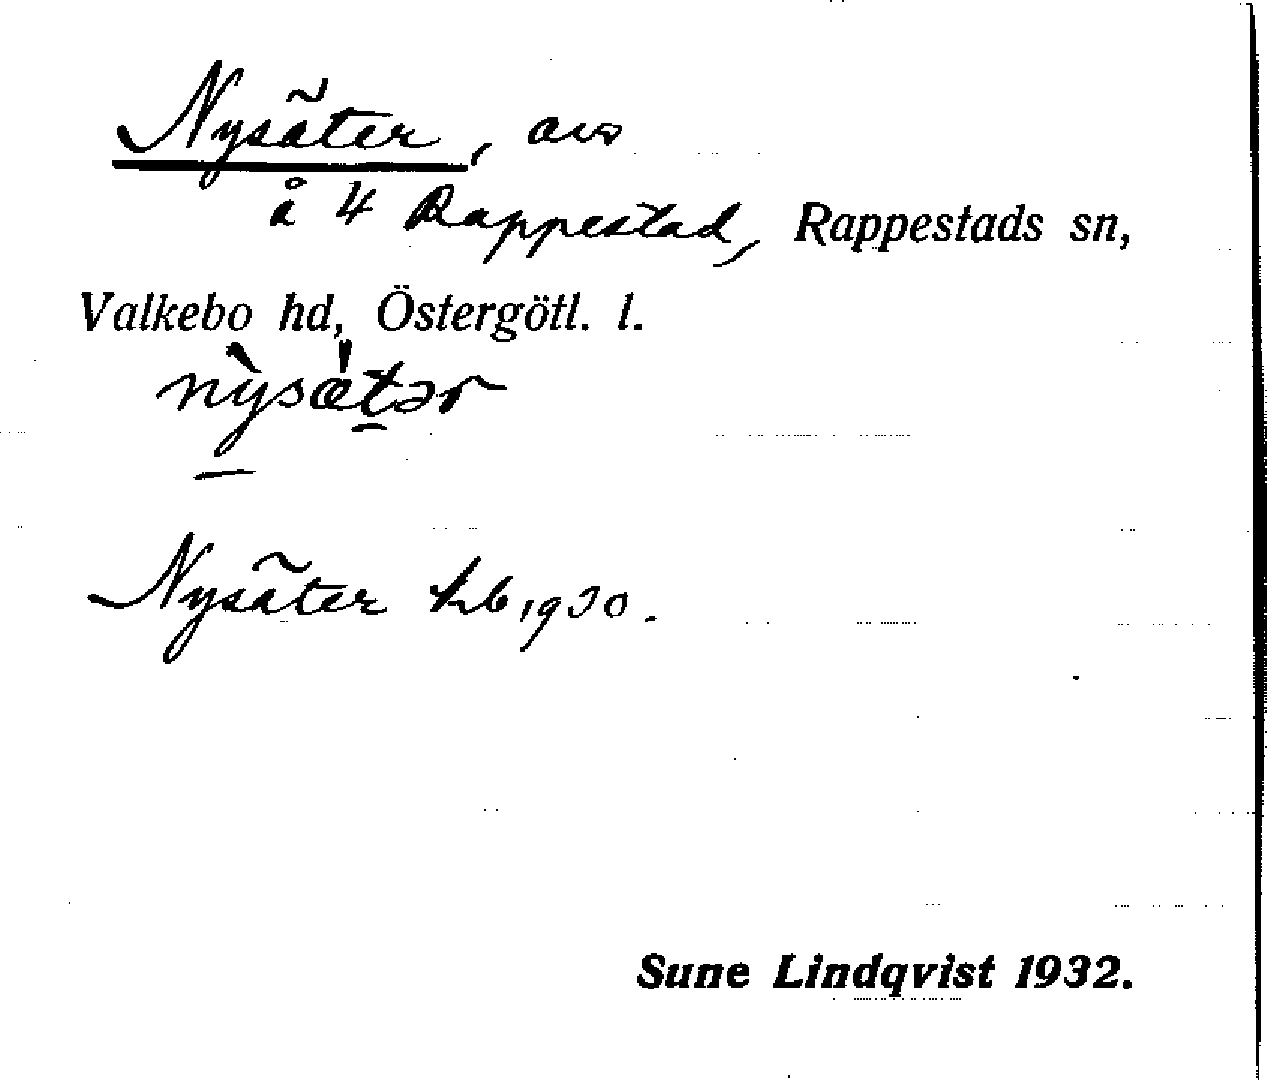 Nysäter, avs
å 4 Rappestad, Rappestads sn,
Valkebo hd, Östergötl. l.
nỳsǽtər
Nysäter kb 1930.
Sune Lindqvist 1932.